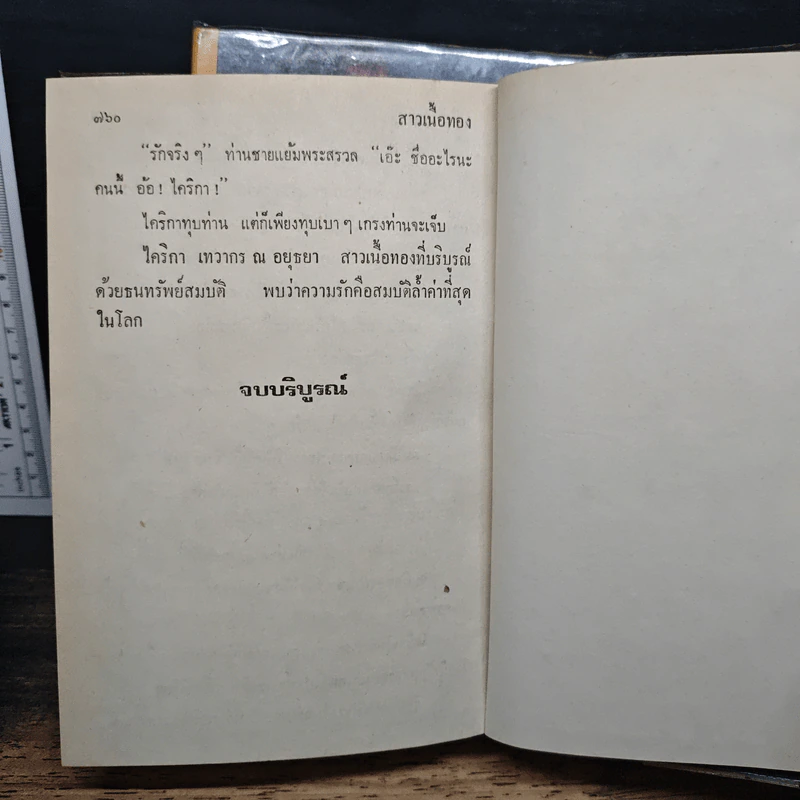 ๗๖๐ สาวเนื้อทอง
“รักจริง ๆ” ท่านชายแย้มพระสรวล “เอ๊ะ ชื่ออะไรนะ
คนนี้ อ้อ! ไคริกา!”
ไคริกาทุบท่าน แต่ก็เพียงทุบเบา ๆ เกรงท่านจะเจ็บ
ไคริกา เทวากร ณ อยุธยา สาวเนื้อทองที่บริบูรณ์
ด้วยธนทรัพย์สมบัติ พบว่าความรักคือสมบัติล้ำค่าที่สุด
ในโลก
จบบริบูรณ์